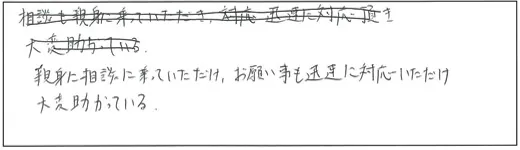 相談も親身に乗っていただき、対応 迅速に対応頂き
大変助かっている.
親身に相談に乗っていただけ, お願い事も迅速に対応いただけ
大変助かっている.